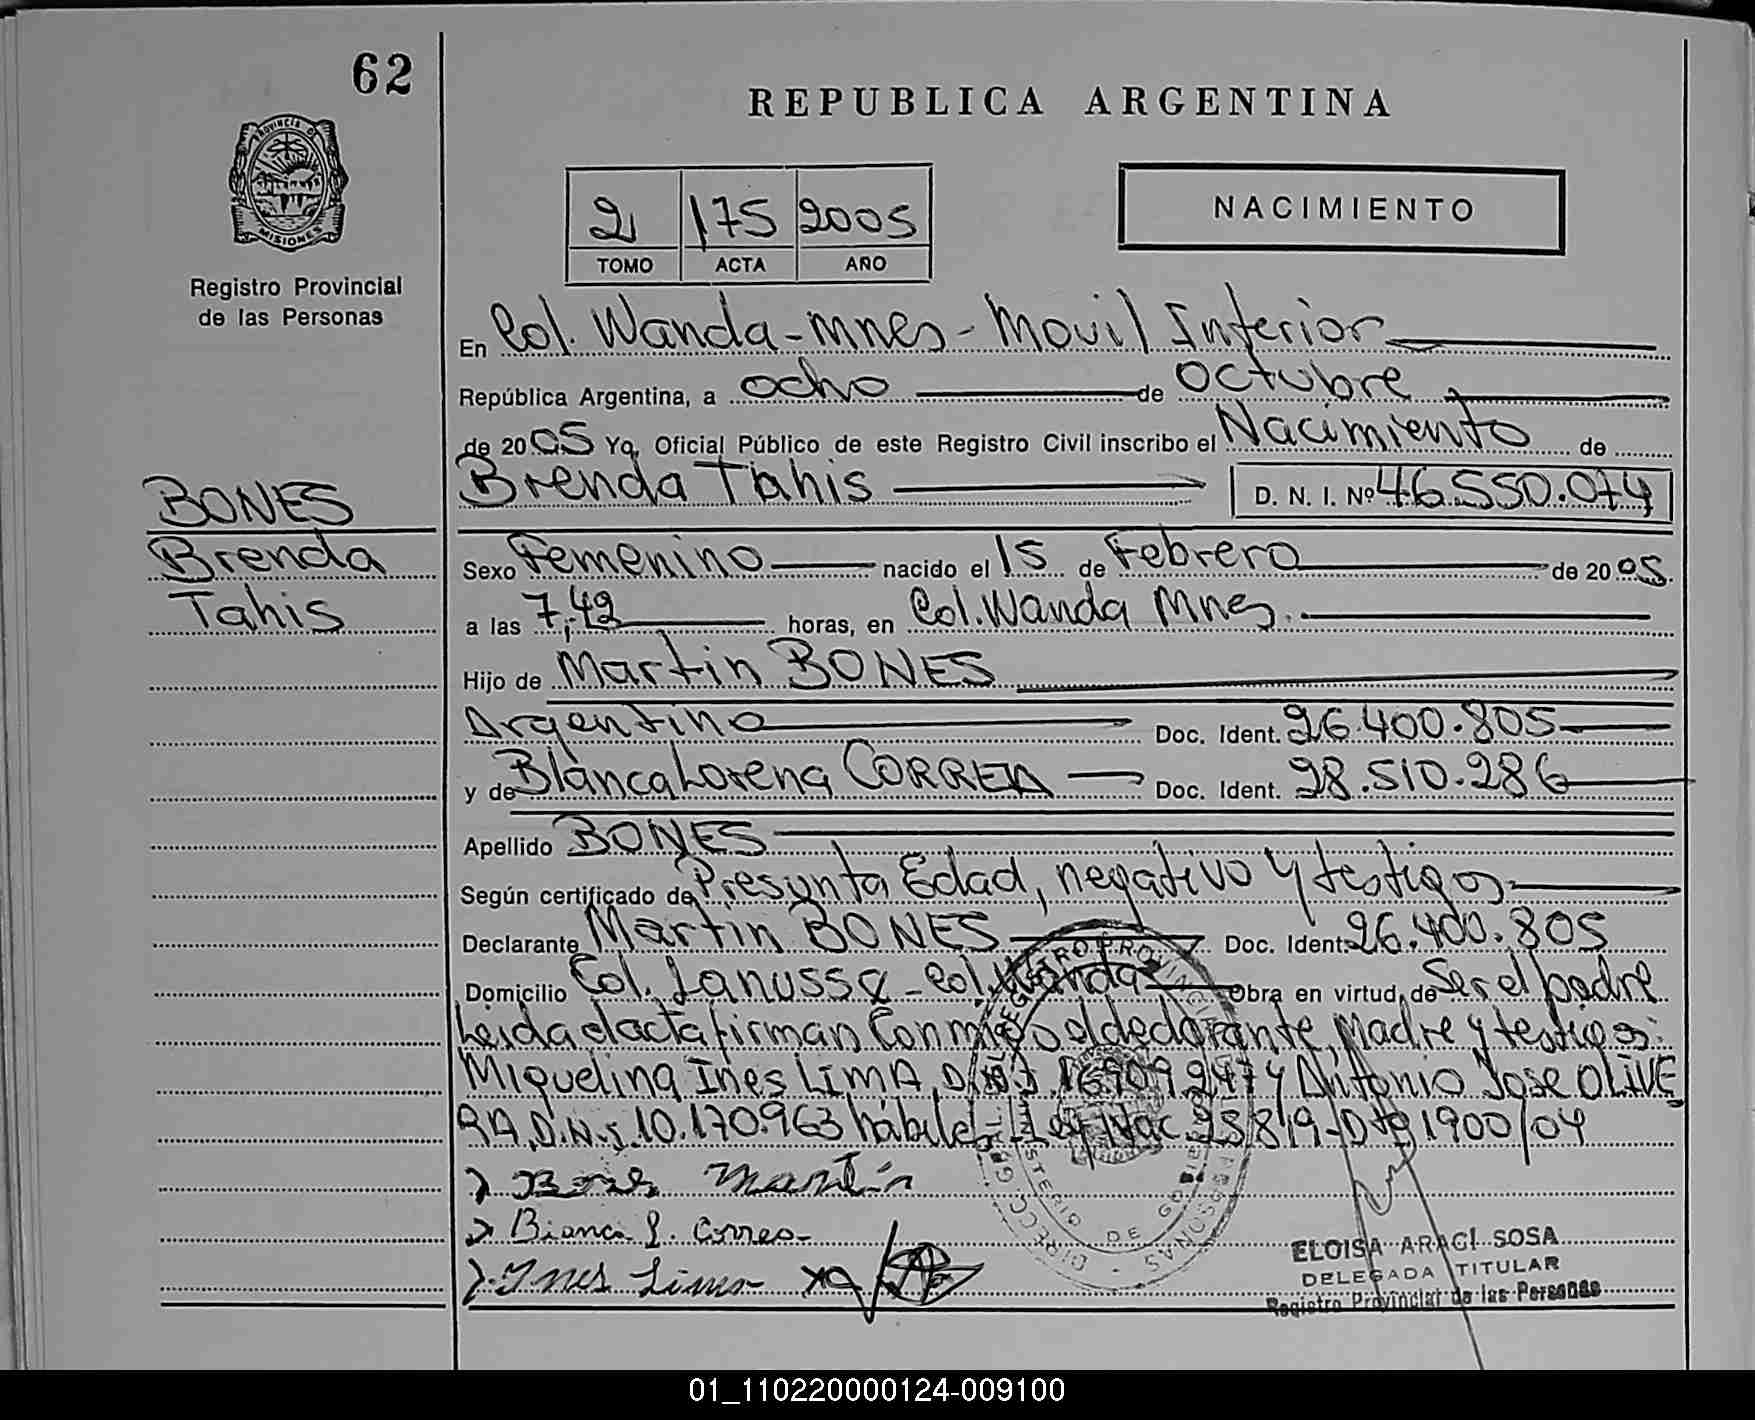 62
REPUBLICA ARGENTINA
PROVINCIA DE
MISIONES
Registro Provincial
de las Personas
2 175 2005
TOMO ACTA AÑO
NACIMIENTO
En Col. Wanda-Mnes-Movil Inferior
República Argentina, a ocho de Octubre
de 2005 Yo, Oficial Público de este Registro Civil inscribo el Nacimiento de
Brenda Tahis D. N. I. Nº 46.550.074
BONES
Brenda
Tahis
Sexo Femenino nacido el 15 de Febrero de 2005.
a las 7,42 horas, en Col. Wanda Mnes.
Hijo de Martin BONES
Argentino Doc. Ident. 26.400.805
y de Blanca Lorena CORREA Doc. Ident. 28.510.286
Apellido BONES
Según certificado de Presunta Edad, negativo y testigos
Declarante Martin BONES Doc. Ident. 26.400.805
Domicilio Col. Lanussa - Col. Wanda Obra en virtud de Ser el padre
Leida el acta firman Conmigo el declarante, Madre y testigos:
Miquelina Ines LIMA, D.N.I. y Antonio Jose OLIVE
RA, D.N.I. 10.170.963 hábiles - Ley Nac 25819-Dto 1900/04
Bones Martin
Blanca L. Correa
Ines Lima
ELOISA ARACI SOSA
DELEGADA TITULAR
Registro Provincial de las Personas
01_110220000124-009100